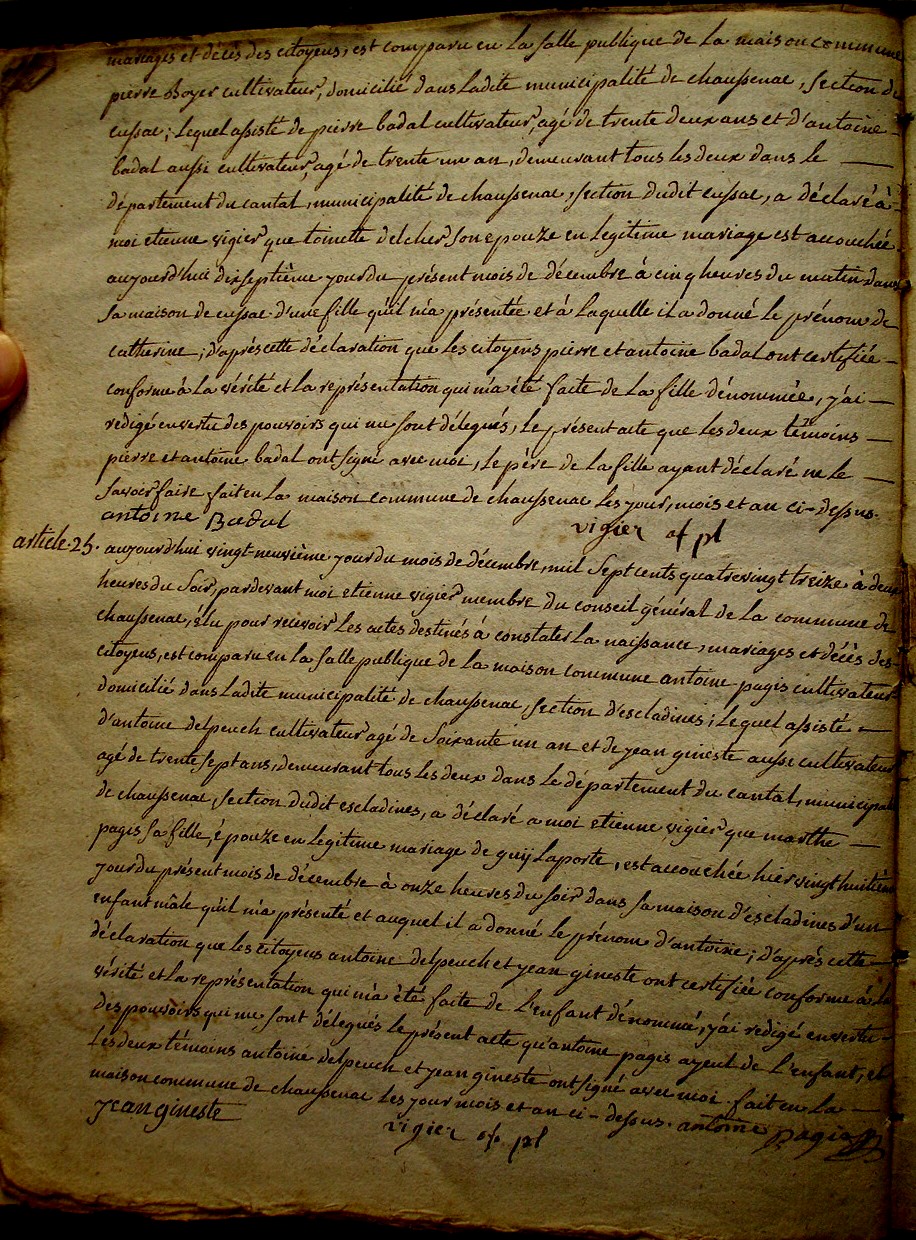 mariages et décès des citoyens, est comparu en la salle publique de la maison commune
pierre boyer cultivateur, domicilié dans ladite municipalité de chaussenac, section de
cussac; lequel assisté de pierre badal cultivateur, agé de trente deux ans et d'antoine
badal aussi cultivateur, agé de trente un an, demeurant tous les deux dans le
département du cantal, municipalité de chaussenac, section dudit cussac, a déclaré à
moi etienne vigier que toinette delcher son epouze en legitime mariage est accouchée
aujourd'hui dixseptième jour du présent mois de décembre à cinq heures du matin dans
sa maison de cussac d'une fille qu'il m'a présentée et à laquelle il a donné le prénom de
catherine; d'après cette déclaration que les citoyens pierre et antoine badal ont certifiée
conforme à la vérité et la représentation qui m'a été faite de la fille dénommée, j'ai
redigé en vertu des pouvoirs qui me sont délegués, le présent acte que les deux témoins
pierre et antoine badal ont signé avec moi, le père de la fille ayant déclaré ne le
savoir faire fait en la maison commune de chaussenac les jour, mois et an ci-dessus.
antoine Badal vigier of pl
article 25. aujourd'hui vingt-neuvième jour du mois de décembre, mil sept cents quatrevingt treize à deux
heures du soir, pardevant moi etienne vigier membre du conseil général de la commune de
chaussenac, élu pour recevoir les actes destinés à constater la naissance, mariages et décès des
citoyens, est comparu en la salle publique de la maison commune antoine pagis cultivateur
domicilié dans ladite municipalité de chaussenac, section d'escladines; lequel assisté
d'antoine delpeuch cultivateur agé de soixante un an et de jean gineste aussi cultivateur
agé de trente sept ans, demeurant tous les deux dans le département du cantal, municipal
de chaussenac, section dudit escladines, a déclaré a moi etienne vigier que marthe
pagis sa fille, épouze en legitime mariage de guij laporte, est accouchée hier vingt huitième
jour du présent mois de décembre à onze heures du soir dans sa maison d'escladines d'un
enfant mâle qu'il m'a présenté et auquel il a donné le prénom d'antoine; d'après cette
déclaration que les citoyens antoine delpeuch et jean gineste ont certifiée conforme à la
vérité et la représentation qui m'a été faite de l'enfant dénommé, j'ai redigé en vertu
des pouvoirs qui me sont délegués le présent acte qu'antoine pagis ayeul de l'enfant, et
les deux témoins antoine delpeuch et jean gineste ont signé avec moi fait en la
maison commune de chaussenac les jour mois et an ci-dessus. antoine pagis
jean gineste vigier of. pl